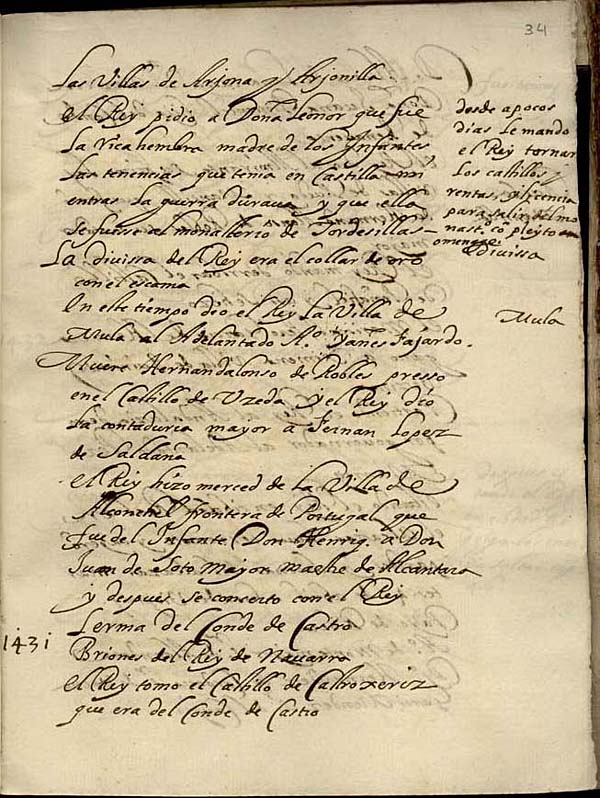 34
Las Villas de Arjona y Arjonilla.
El Rey pidio a Doña Leonor que fue
La rica hembra madre de los Ynfantes
Las tenencias que tenia en Castilla mi
entras La guerra duraua y que ella
se fuese al monasterio de Tordesillas
desde a pocos
dias le mando
el Rey tornar
Los castillos y
rentas, y licencia
para salir del mo
nast.º cõ pleyto
omenage
La divissa del Rey era el collar de oro
con el escama
divissa
En este tiempo dio el Rey La Villa de
Mula al Adelantado A.º yanes fajardo.
Mula
Muere Hernandalonso de Robles presso
en el Castillo de Uzeda y el Rey dio
La contaduria mayor a Fernan Lopez
de Saldaña
El Rey hizo merced de La Villa de
Alconchel frontera de Portugal que
fue del Infante Don Henriq. a Don
Juan de Soto mayor maestre de Alcantara
y despues se concerto con el Rey
1431
Lerma del Conde de Castro
Briones del Rey de Nauarra
El Rey tomo el Castillo de Castroxeriz
que era del Conde de Castro